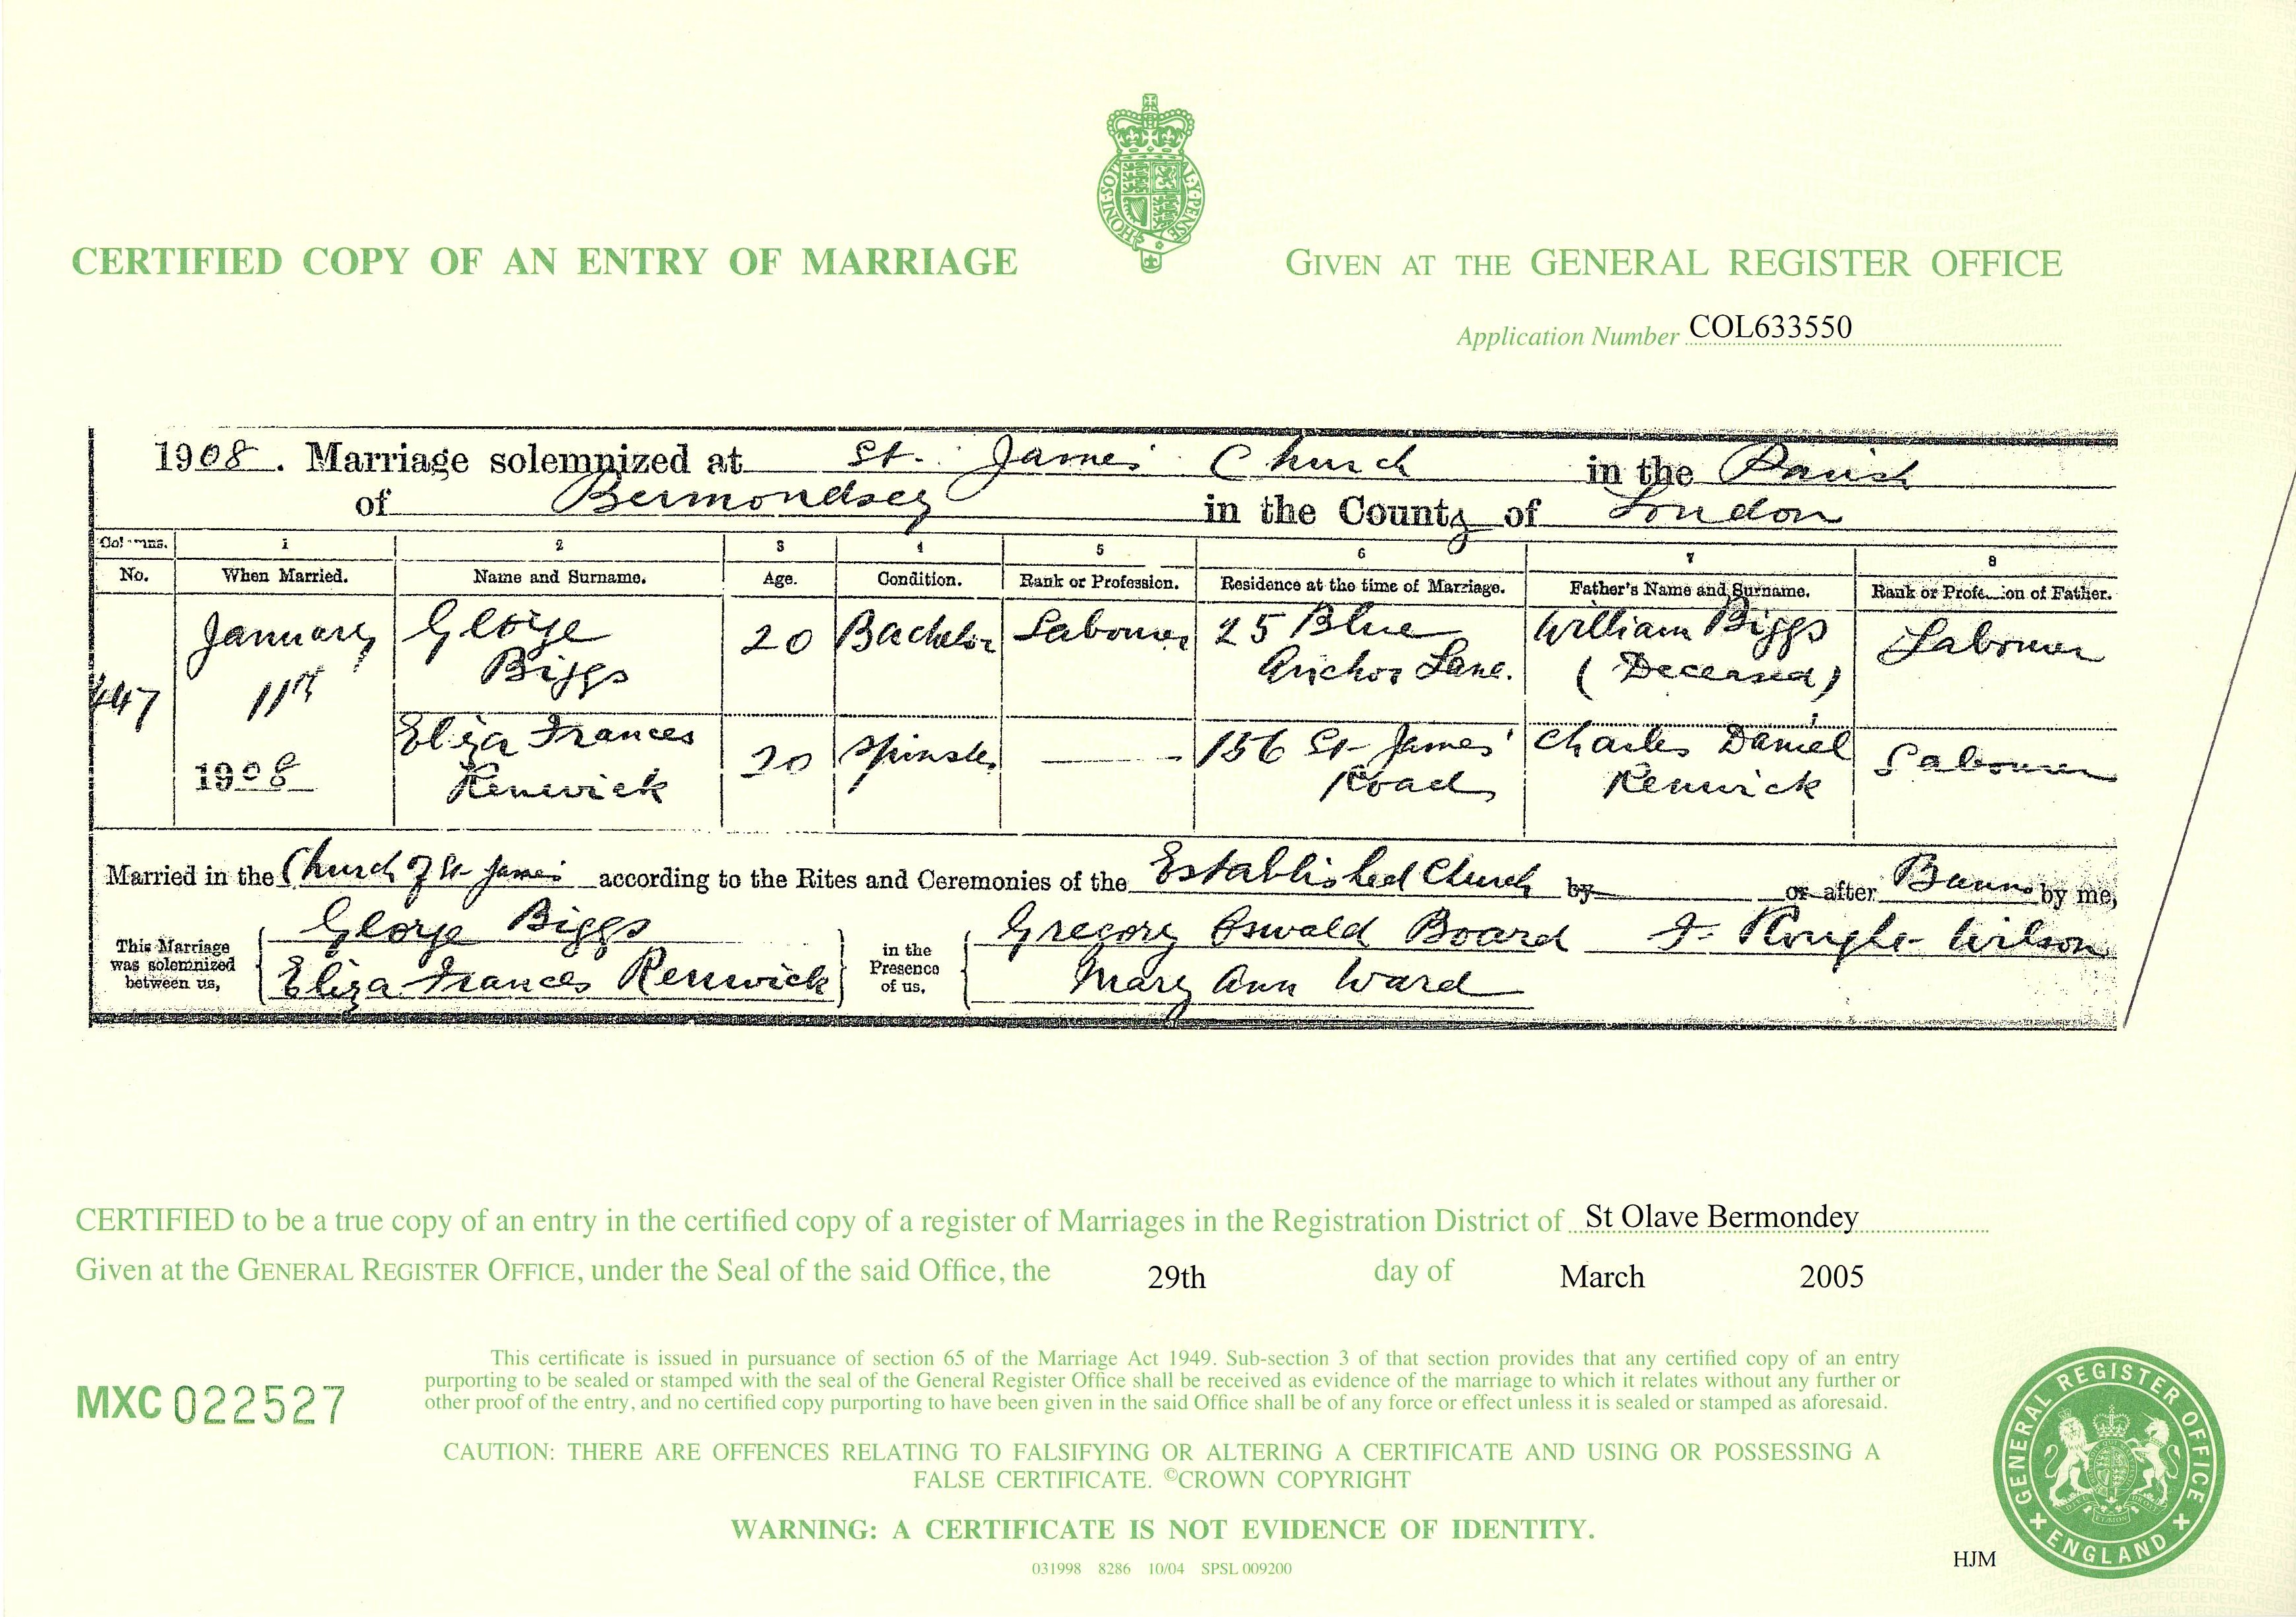 HONI·SOIT AL·Y·PENSE
CERTIFIED COPY OF AN ENTRY OF MARRIAGE
GIVEN AT THE GENERAL REGISTER OFFICE
Application Number COL633550
1908. Marriage solemnized at St. James Church in the Parish
of Bermondsey in the County of London
Columns. 1 2 3 4 5 6 7 8
No. When Married. Name and Surname. Age. Condition. Rank or Profession. Residence at the time of Marriage. Father's Name and Surname. Rank or Profession of Father.
447 January 11th 1908
George Biggs 20 Bachelor Labourer 25 Blue Anchor Lane. William Biggs (Deceased) Labourer
Eliza Frances Renwick 20 Spinster 156 St James' Road Charles Daniel Renwick Labourer
Married in the Church of St James according to the Rites and Ceremonies of the Established Church by or after Banns by me,
This Marriage was solemnized between us, George Biggs
Eliza Frances Renwick
in the Presence of us, Gregory Oswald Board
Mary Ann Ward
Wilson
CERTIFIED to be a true copy of an entry in the certified copy of a register of Marriages in the Registration District of St Olave Bermondey
Given at the GENERAL REGISTER OFFICE, under the Seal of the said Office, the 29th day of March 2005
This certificate is issued in pursuance of section 65 of the Marriage Act 1949. Sub-section 3 of that section provides that any certified copy of an entry
purporting to be sealed or stamped with the seal of the General Register Office shall be received as evidence of the marriage to which it relates without any further or
other proof of the entry, and no certified copy purporting to have been given in the said Office shall be of any force or effect unless it is sealed or stamped as aforesaid.
MXC 022527
CAUTION: THERE ARE OFFENCES RELATING TO FALSIFYING OR ALTERING A CERTIFICATE AND USING OR POSSESSING A
FALSE CERTIFICATE. ©CROWN COPYRIGHT
WARNING: A CERTIFICATE IS NOT EVIDENCE OF IDENTITY.
031998 8286 10/04 SPSL 009200
HJM
GENERAL REGISTER OFFICE
ENGLAND